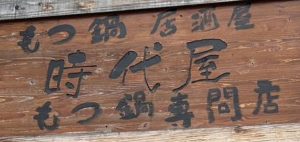 もつ鍋 居酒屋
時代屋
もつ鍋専問店